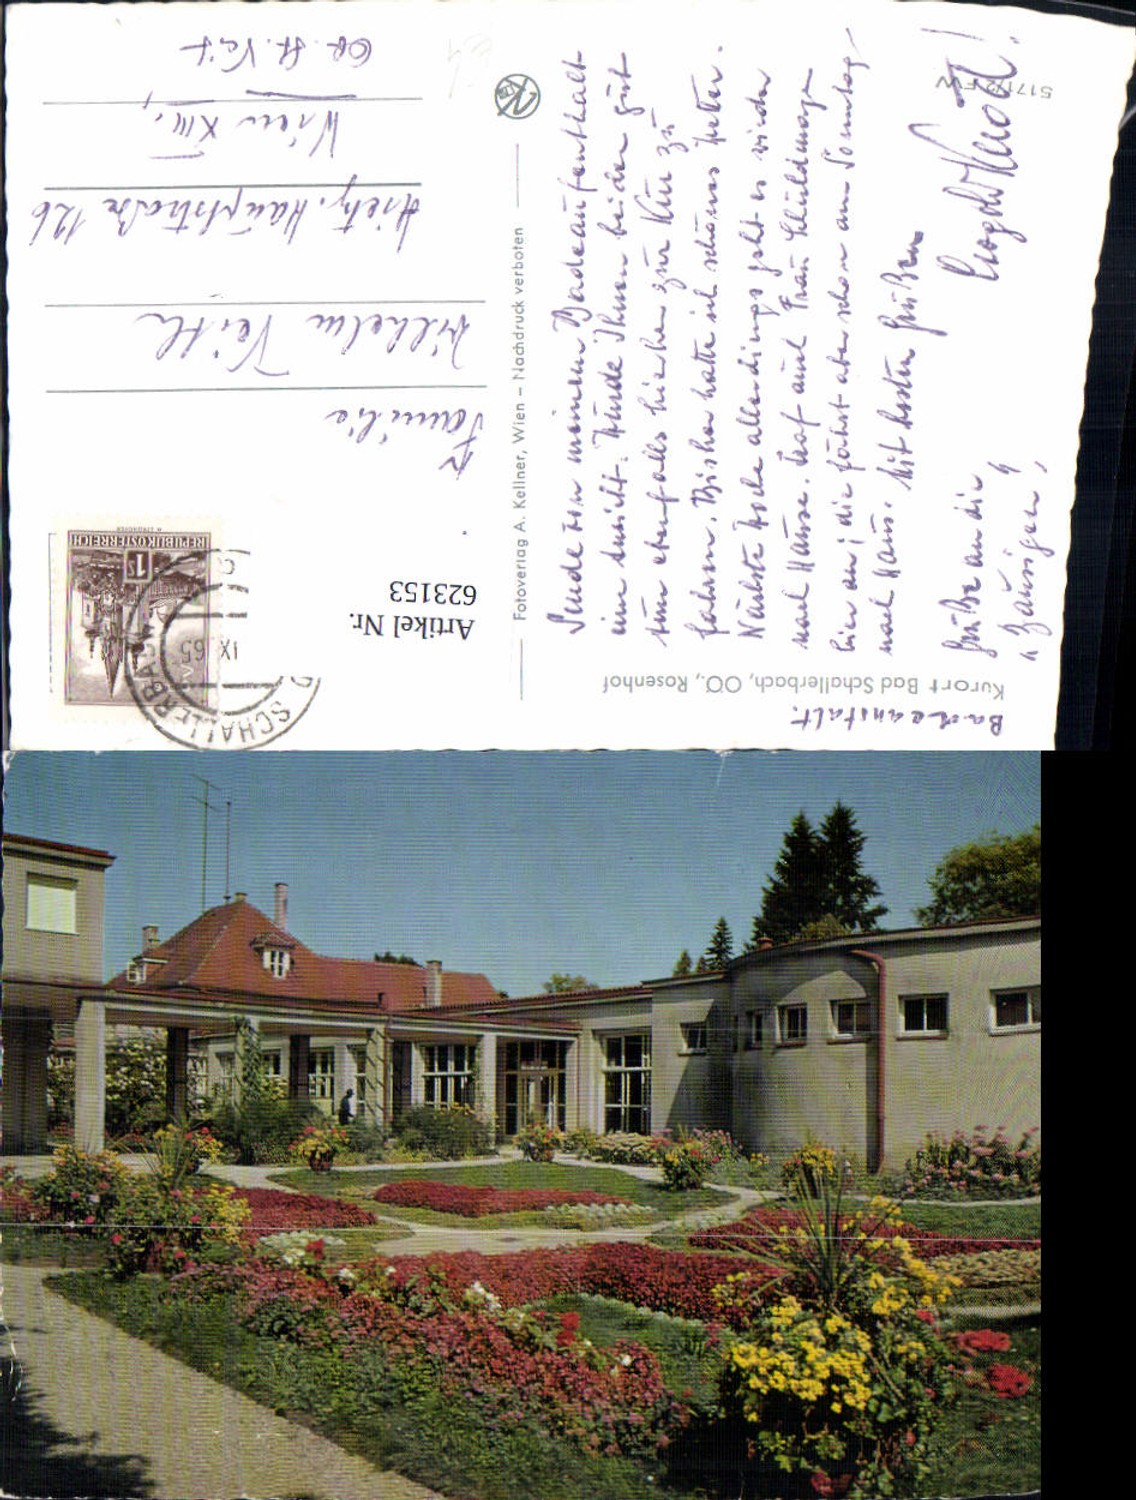 Kurort Bad Schallerbach, OÖ., Rosenhof
Badeanstalt.
Sende von meinem Badeaufenthalt
ein . Würde Ihnen beiden gut
tun ebenfalls hierher zur Kur zu
fahren. Bisher hatte ich schönes Wetter.
Nächste Woche allerdings geht es wieder
nach Hause. Traf auch Frau
hier an; die fährt aber schon am Sonntag
nach Haus. Mit besten Grüßen
Grüße an die
"
Fotoverlag A. Kellner, Wien – Nachdruck verboten
Artikel Nr.
623153
REPUBLIK ÖSTERREICH
1
SCHALLERBA
IX 65
Familie
Wilhelm Veith
Hietz. Hauptstraße 126
Wien XIII,
Ob. St. Veit